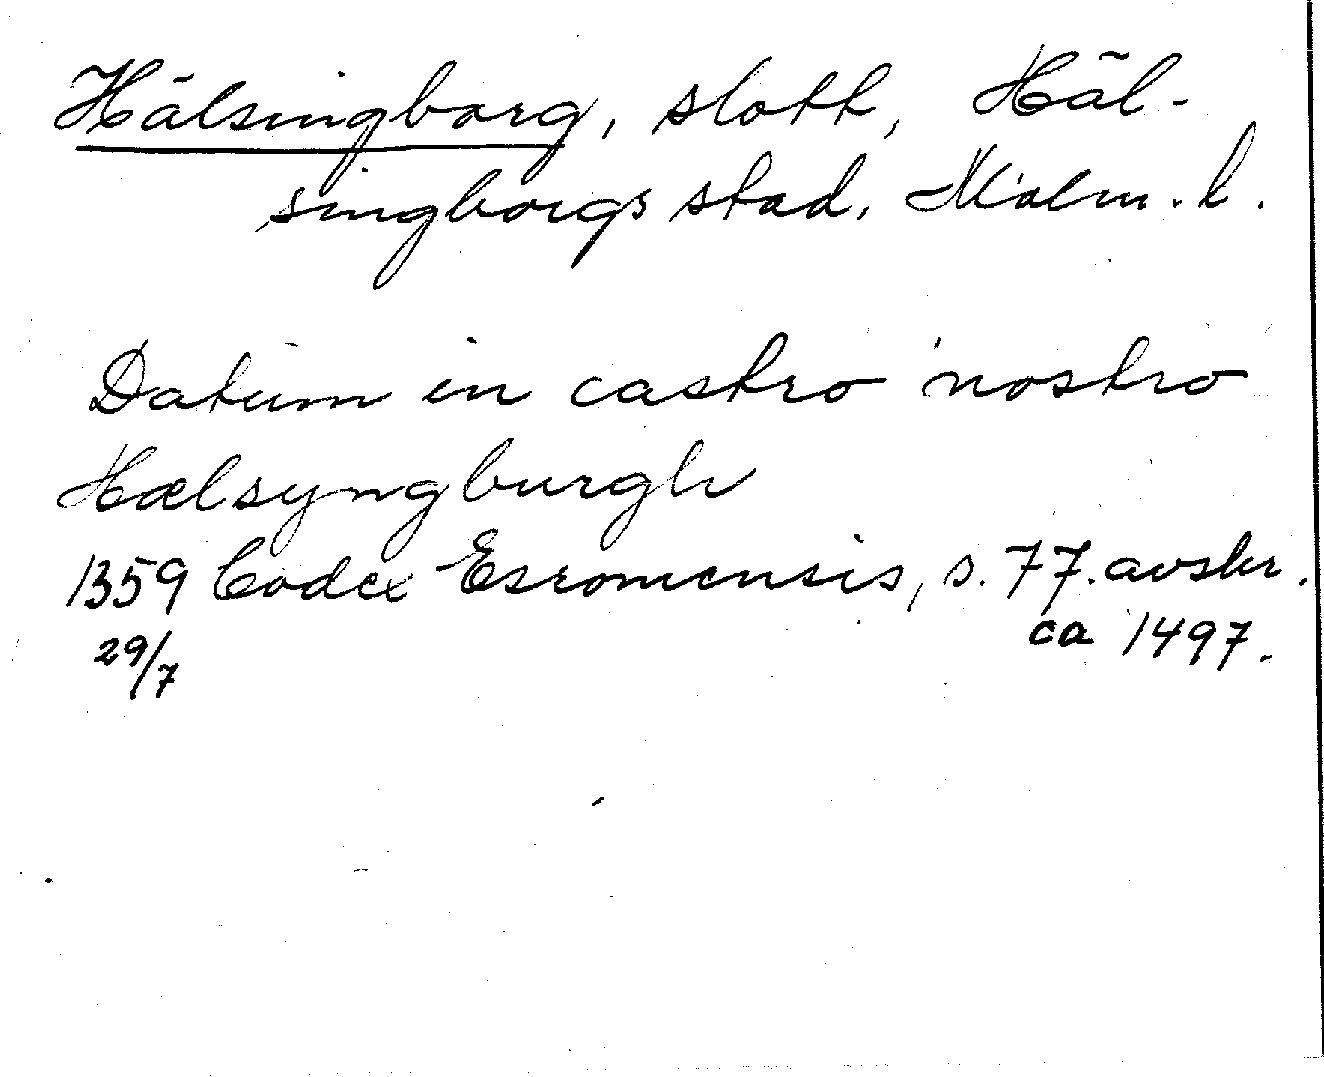 Hälsingborg, slott, Häl-
singborgs stad, Malm. l.
Datum in castro nostro
Hælsyngburgh
1359 Codex Esromensis, s. 77. avskr.
29/7 ca 1497.